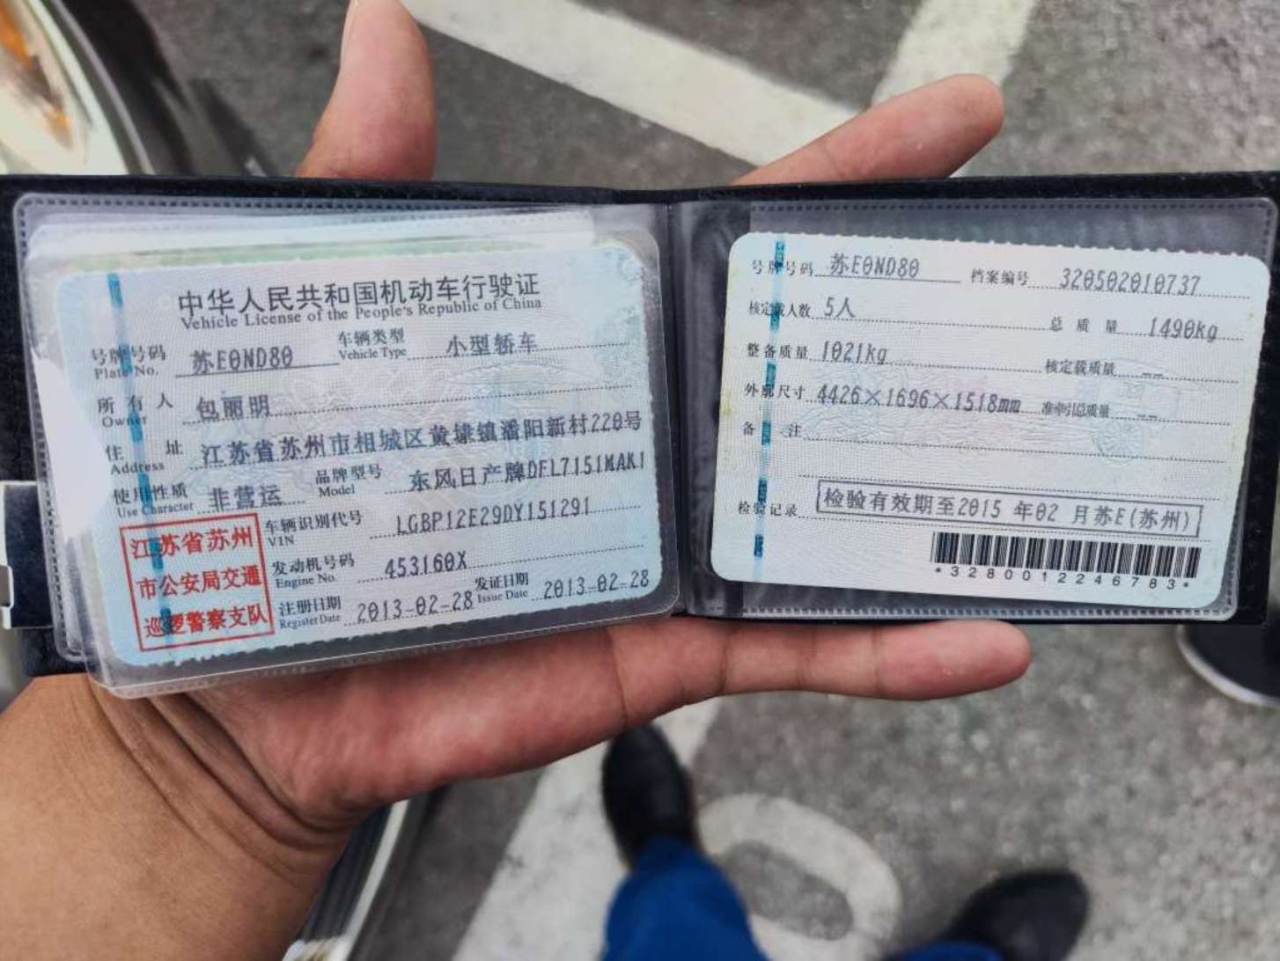 中华人民共和国机动车行驶证
Vehicle License of the People's Republic of China
号牌号码 苏E0ND80 车辆类型 小型轿车
Plate No. Vehicle Type
所有人 包丽明
Owner
住址 江苏省苏州市相城区黄埭镇潘阳新村220号
Address
使用性质 非营运 品牌型号 东风日产牌DFL7151MAK1
Use Character Model
江苏省苏州
市公安局交通
巡逻警察支队
车辆识别代号 LGBP12E29DY151291
VIN
发动机号码 453160X
Engine No.
注册日期 2013-02-28 发证日期 2013-02-28
Register Date Issue Date
号牌号码 苏E0ND80 档案编号 320502010737
核定载人数 5人 总质量 1490kg
整备质量 1021kg 核定载质量 --
外廓尺寸 4426×1696×1518mm 准牵引总质量 --
备注
检验记录 检验有效期至2015年02月苏E(苏州)
*3280012246783*